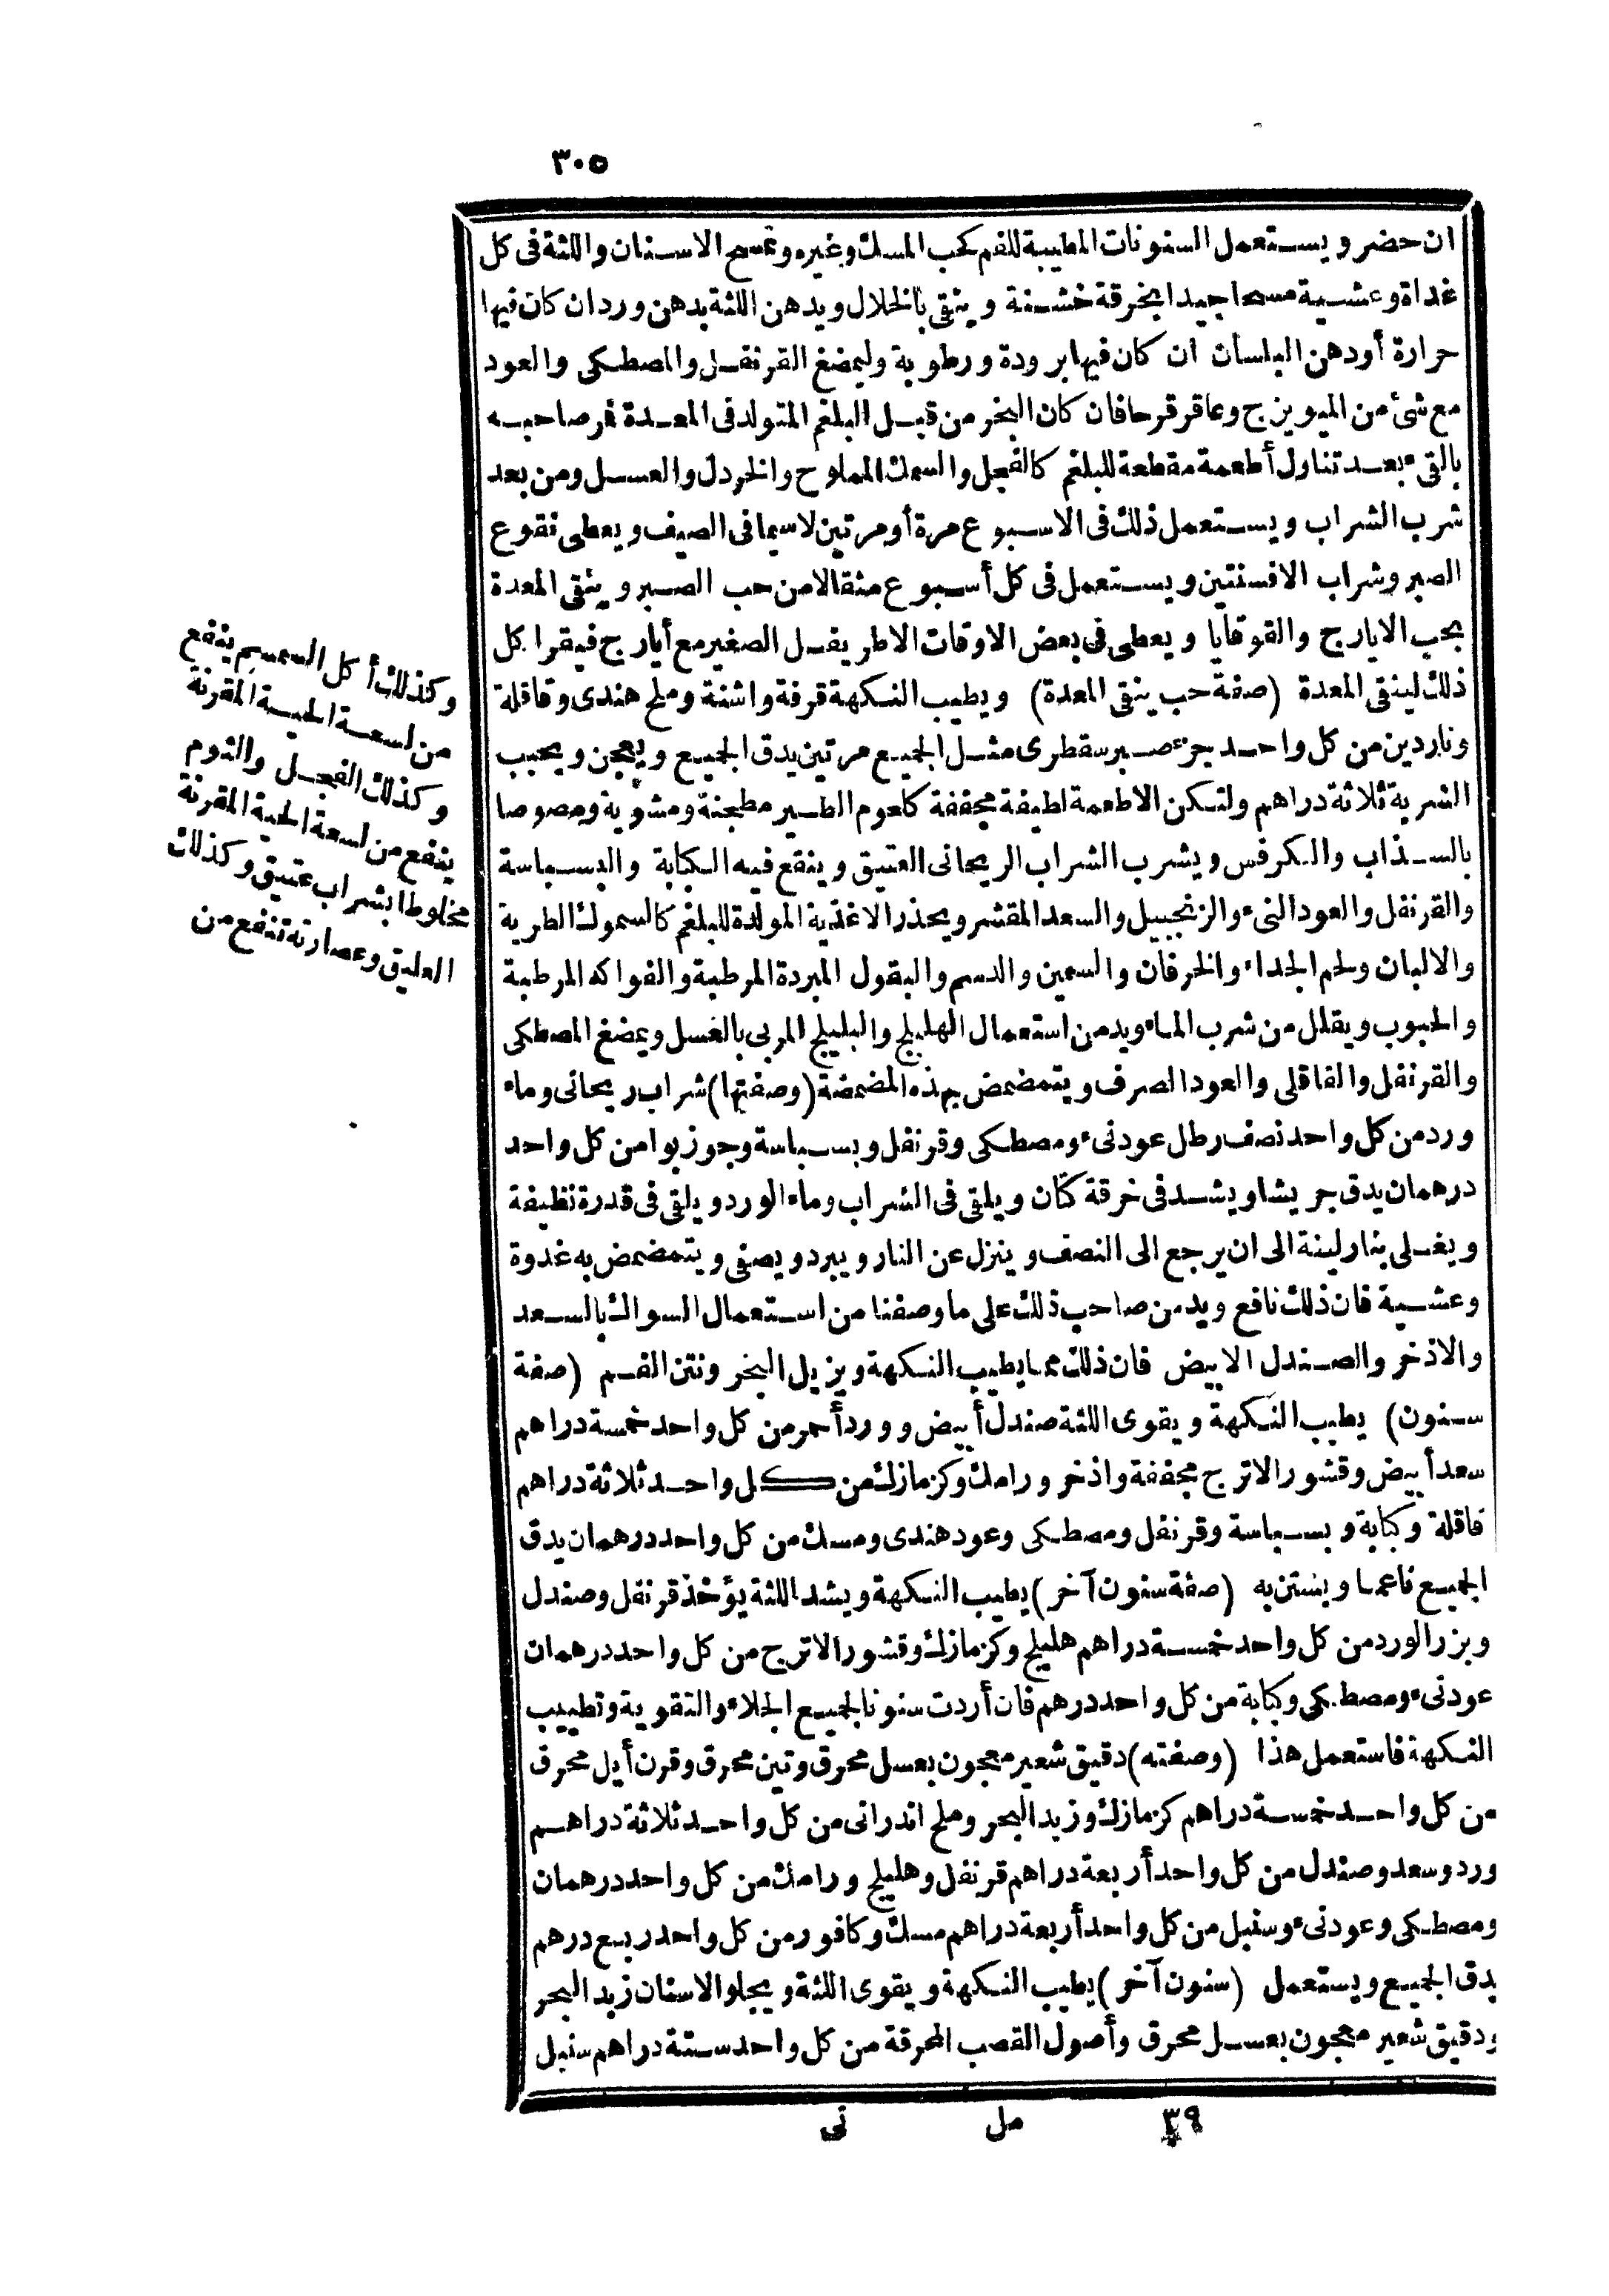 ٣٠٥
ان حضر ويستعمل السنونات المطيبة للفم كحب المسك وغيره وتمسح الاسنان واللثة فى كل
غداة وعشية مسحا جيدا بخرقة خشنة وينقى بالخلال ويدهن اللثة بدهن ورد ان كان فيها
حرارة أودهن البلسان ان كان فيها برودة ورطوبة وليمضغ القرنفل والمصطكى والعود
مع شئ من الميويزج وعاقرقرحا فان كان البخر من قبل البلغم المتولد فى المعدة فمر صاحبه
بالقىء بعد تناول أطعمة مقطعة للبلغم كالفجل والسمك المملوح والخردل والعسل ومن بعد
شرب الشراب ويستعمل ذلك فى الاسبوع مرة أو مرتين لاسيما فى الصيف ويعطى نقوع
الصبر وشراب الافسنتين ويستعمل فى كل أسبوع مثقالا من حب الصبر وينقى المعدة
بحب الايارج والقوقايا ويعطى فى بعض الاوقات الاطريفل الصغير مع أيارج فيقرا كل
ذلك لينقى المعدة (صفة حب ينقى المعدة) ويطيب النكهة قرفة واشنة وملح هندى وقاقلة
وناردين من كل واحد جزء صبر سقطرى مثل الجميع مرتين يدق الجميع ويعجن ويحبب
الشربة ثلاثة دراهم ولتكن الاطعمة لطيفة مجففة كلحوم الطير مطجنة ومشوية ومصوصا
بالسذاب والكرفس ويشرب الشراب الريحانى العتيق وينقع فيه الكبابة والبسباسة
والقرنفل والعود النىء والزنجبيل والسعد المقشر ويحذر الاغذية المولدة للبلغم كالسموك الطرية
والالبان ولحم الجداء والخرفان والسمين والدسم والبقول المبردة المرطبة والفواكه المرطبة
والحبوب ويقلل من شرب الماء ويدمن استعمال الهليلج والبليلج المربى بالعسل ويمضغ المصطكى
والقرنفل والقاقلى والعود الصرف ويتمضمض بهذه المضمضة (وصفتها) شراب ريحانى وماء
ورد من كل واحد نصف رطل عود نىء ومصطكى وقرنفل وبسباسة وجوز بوا من كل واحد
درهمان يدق جريشا ويشد فى خرقة كتان ويلقى فى الشراب وماء الورد ويلقى فى قدرة نظيفة
ويغلى بنار لينة الى ان يرجع الى النصف وينزل عن النار ويبرد ويصفى ويتمضمض به غدوة
وعشية فان ذلك نافع ويدمن صاحب ذلك على ما وصفنا من استعمال السواك بالسعد
والاذخر والصندل الابيض فان ذلك مما يطيب النكهة ويزيل البخر ونتن الفم (صفة
سنون) يطيب النكهة ويقوى اللثة صندل أبيض وورد أحمر من كل واحد خمسة دراهم
سعد أبيض وقشور الاترج مجففة واذخر ورامك وكزمازك من كل واحد ثلاثة دراهم
قاقلة وكبابة وبسباسة وقرنفل ومصطكى وعود هندى ومسك من كل واحد درهمان يدق
الجميع ناعما ويستن به (صفة سنون آخر) يطيب النكهة ويشد اللثة يؤخذ قرنفل وصندل
وبزر الورد من كل واحد خمسة دراهم هليلج وكزمازك وقشور الاترج من كل واحد درهمان
عود نىء ومصطكى وكبابة من كل واحد درهم فان أردت سنونا لجميع الجلاء والتقوية وتطييب
النكهة فاستعمل هذا (وصفته) دقيق شعير معجون بعسل محرق وتين محرق وقرن أيل محرق
من كل واحد خمسة دراهم كزمازك وزبد البحر وملح اندرانى من كل واحد ثلاثة دراهم
ورد وسعد وصندل من كل واحد أربعة دراهم قرنفل وهليلج ورامك من كل واحد درهمان
ومصطكى وعود نىء وسنبل من كل واحد أربعة دراهم مسك وكافور من كل واحد ربع درهم
يدق الجميع ويستعمل (سنون آخر) يطيب النكهة ويقوى اللثة ويجلو الاسنان زبد البحر
ودقيق شعير معجون بعسل محرق وأصول القصب المحرقة من كل واحد ستة دراهم سنبل
٣٩ مل نى
وكذلك أكل السمسم ينفع
من لسعة الحية المقرنة
وكذلك الفجل والثوم
ينفع من لسعة الحية المقرنة
مخلوطا بشراب عتيق وكذلك
العليق وعصارته تنفع من